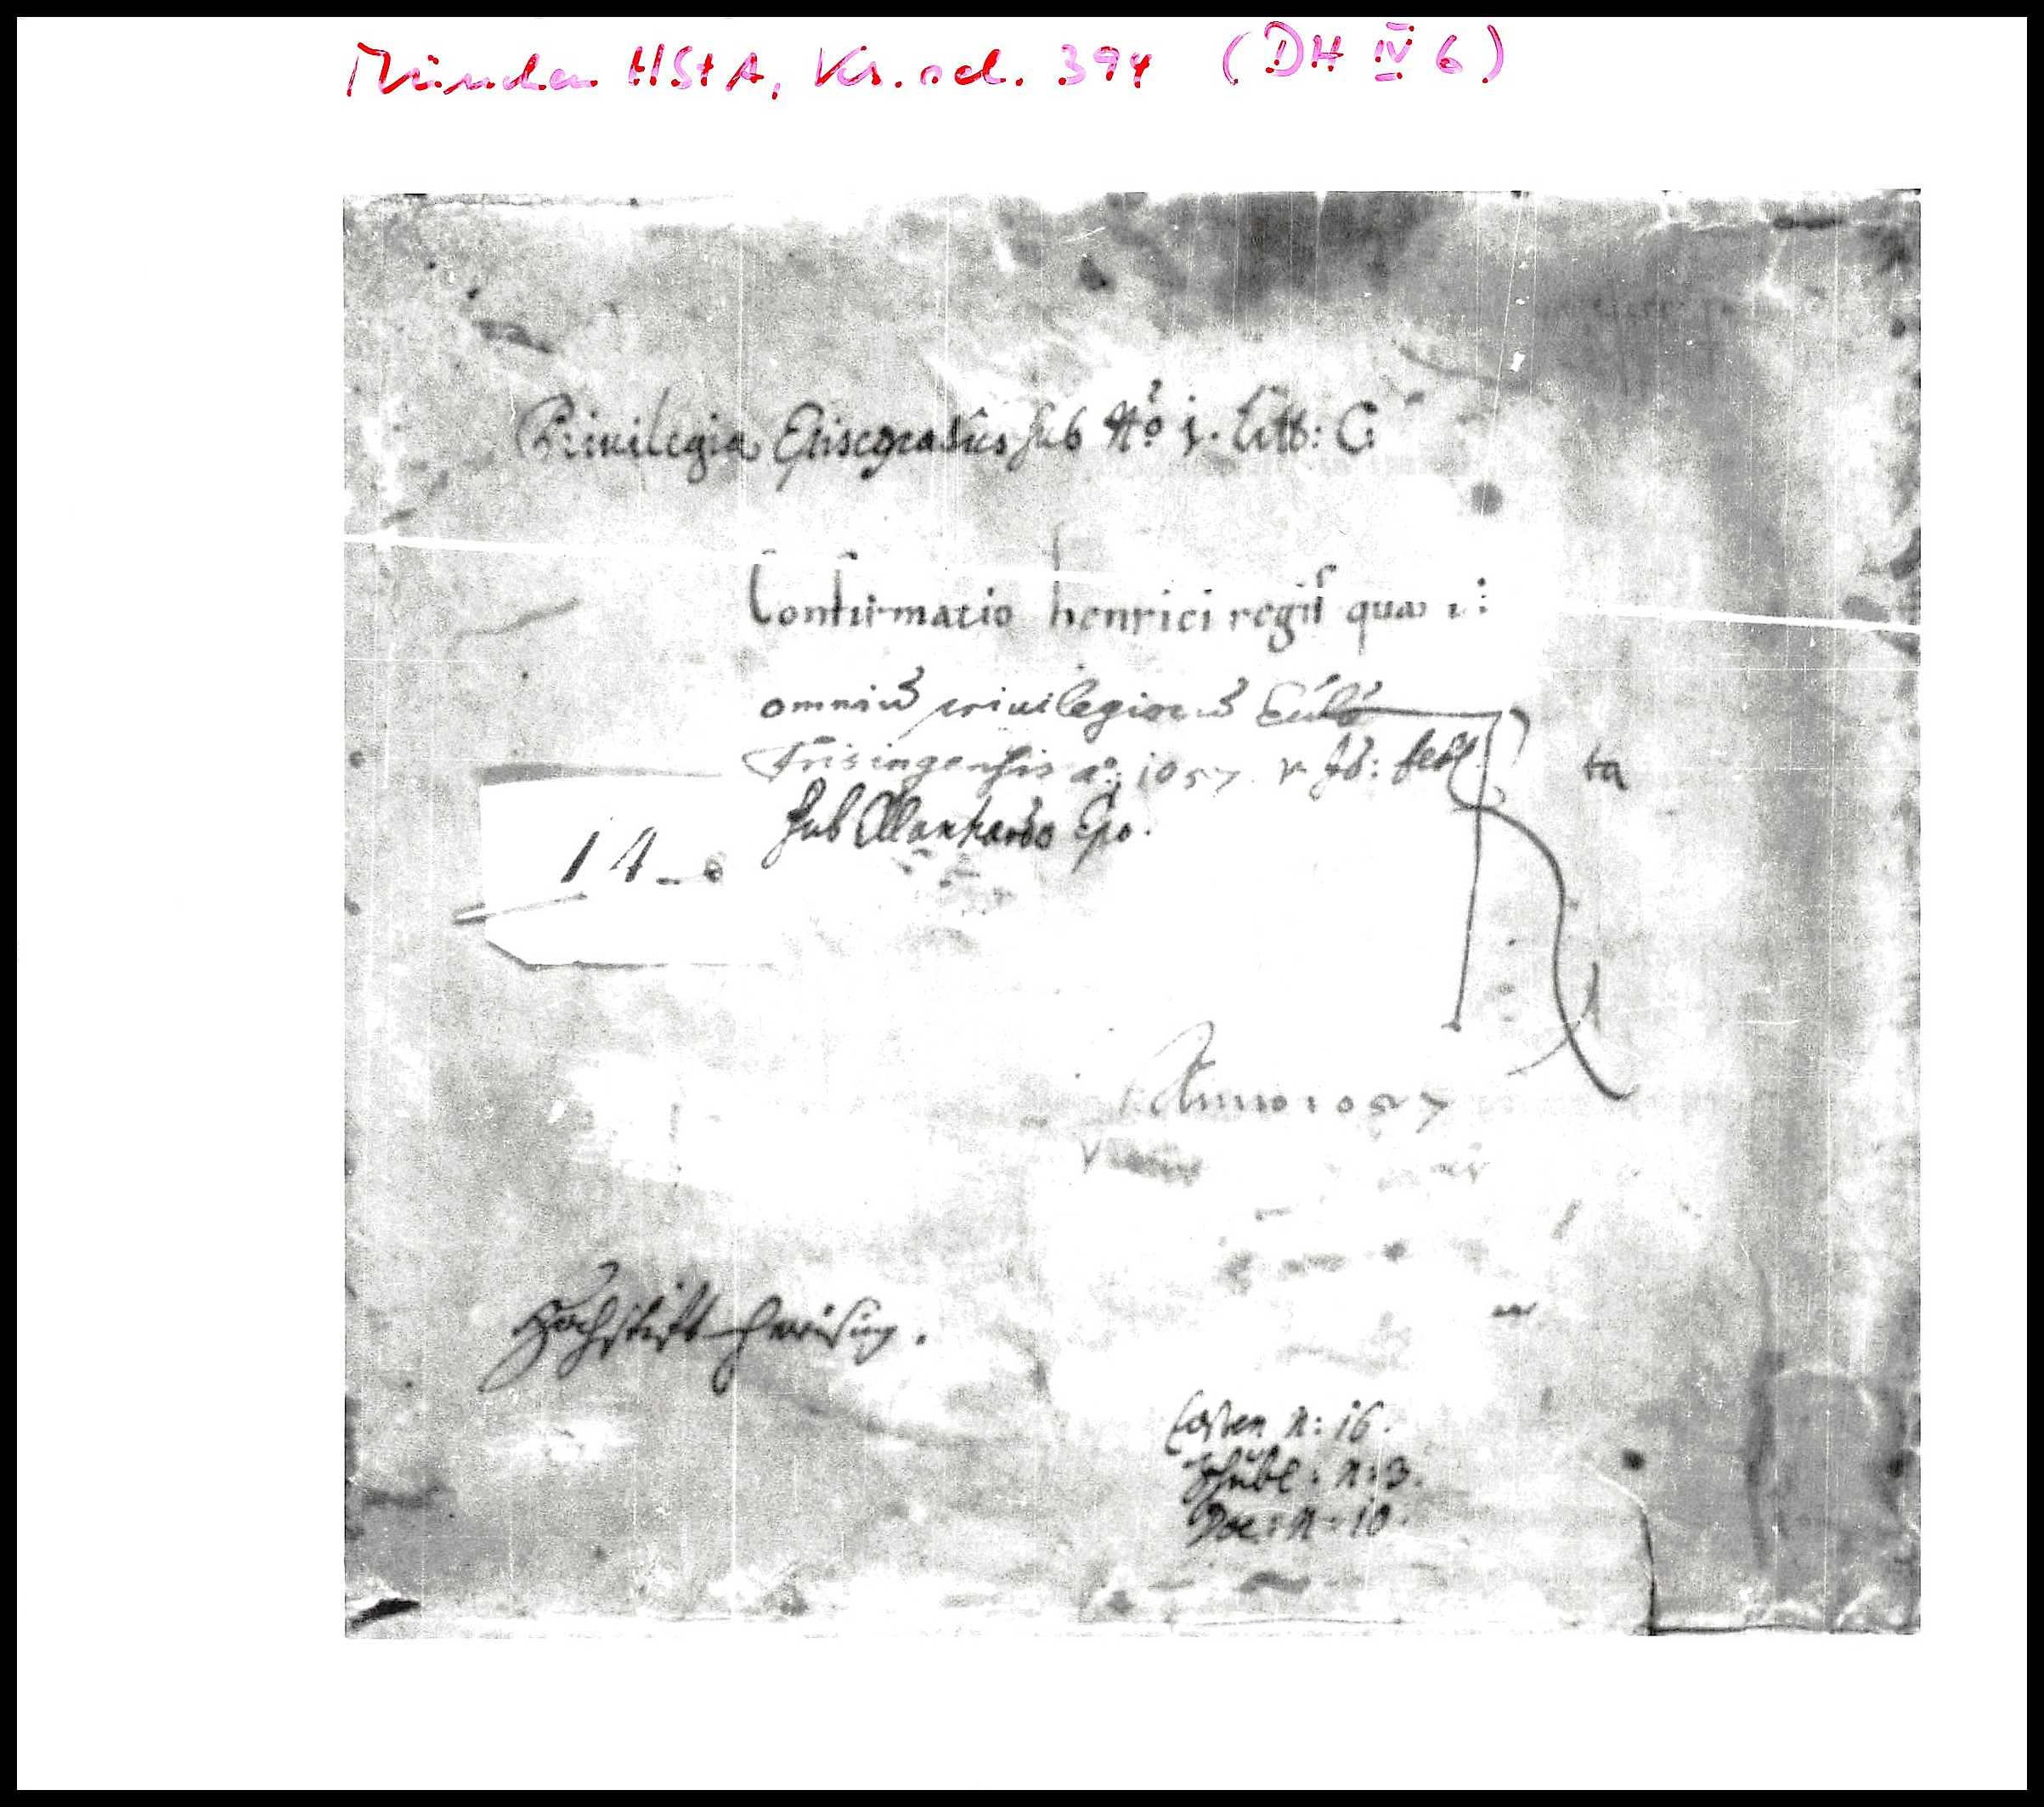 München HStA, Ks. sel. 394 (DH IV 6)
Priuilegia Episcopatus sub No 1. Litt: C:
Confirmatio henrici regis quarti:
omniū priuilegiorū Eccl̄
Frisingensis ao: 1057. v. fb: febr.
ta
sub Ellenhardo Epo.
14
Anno 1057
Hochstifft Freising.
Casten N: 16.
Schübl: N: 3.
Doc: N: 10.